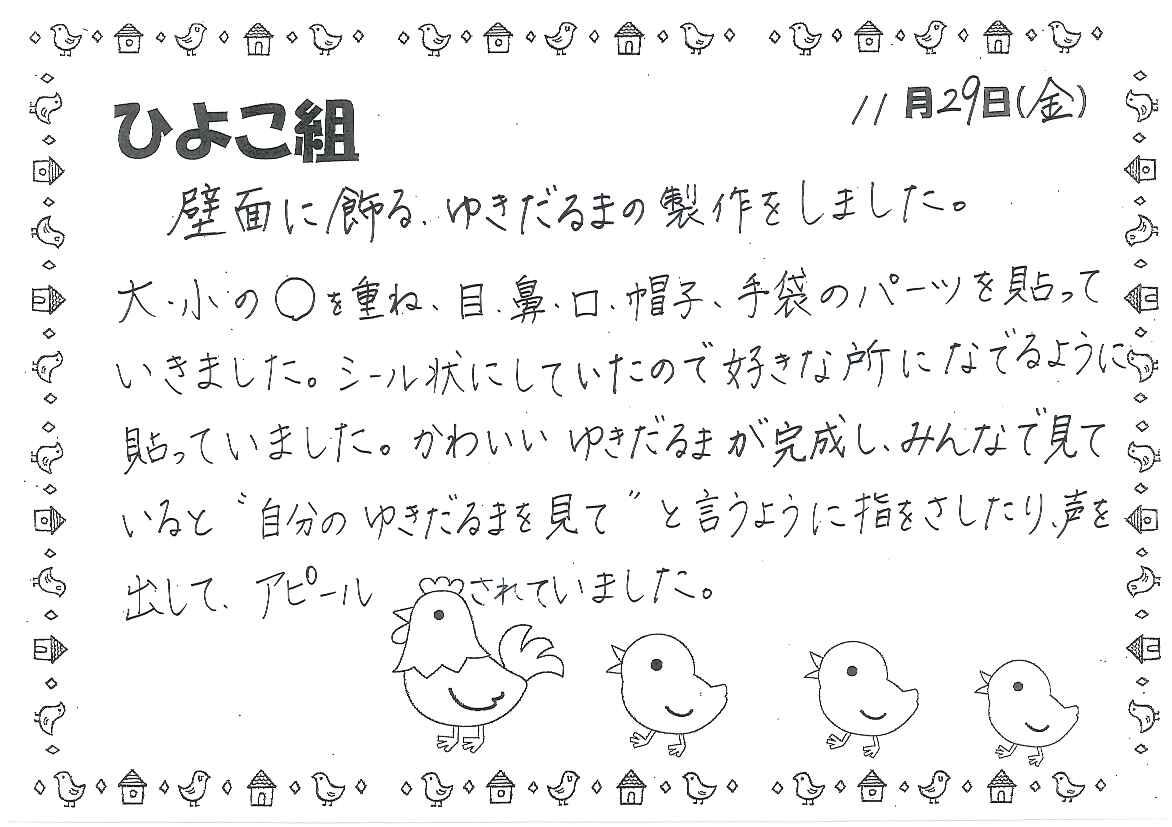 ひよこ組
11月29日(金)
壁面に飾る、ゆきだるまの製作をしました。
大・小の〇を重ね、目・鼻・口・帽子、手袋のパーツを貼って
いきました。シール状にしていたので好きな所になでるように
貼っていました。かわいいゆきだるまが完成し、みんなで見て
いると〝自分のゆきだるまを見て〟と言うように指をさしたり、声を
出して、アピールされていました。